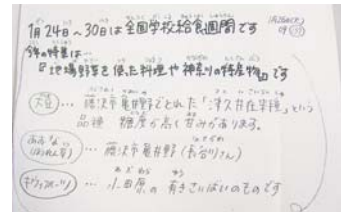 1月24日～30日は全国学校給食週間です
今年の特集は…
『地場野菜を使った料理や神奈川の特産物』です
大豆… 藤沢市亀井野でとれた「津久井在来種」という
品種 糖度が高く甘みがあります。
… 藤沢市亀井野(長谷川さん)
キウイフルーツ … 小田原の 有きさいばいのものです